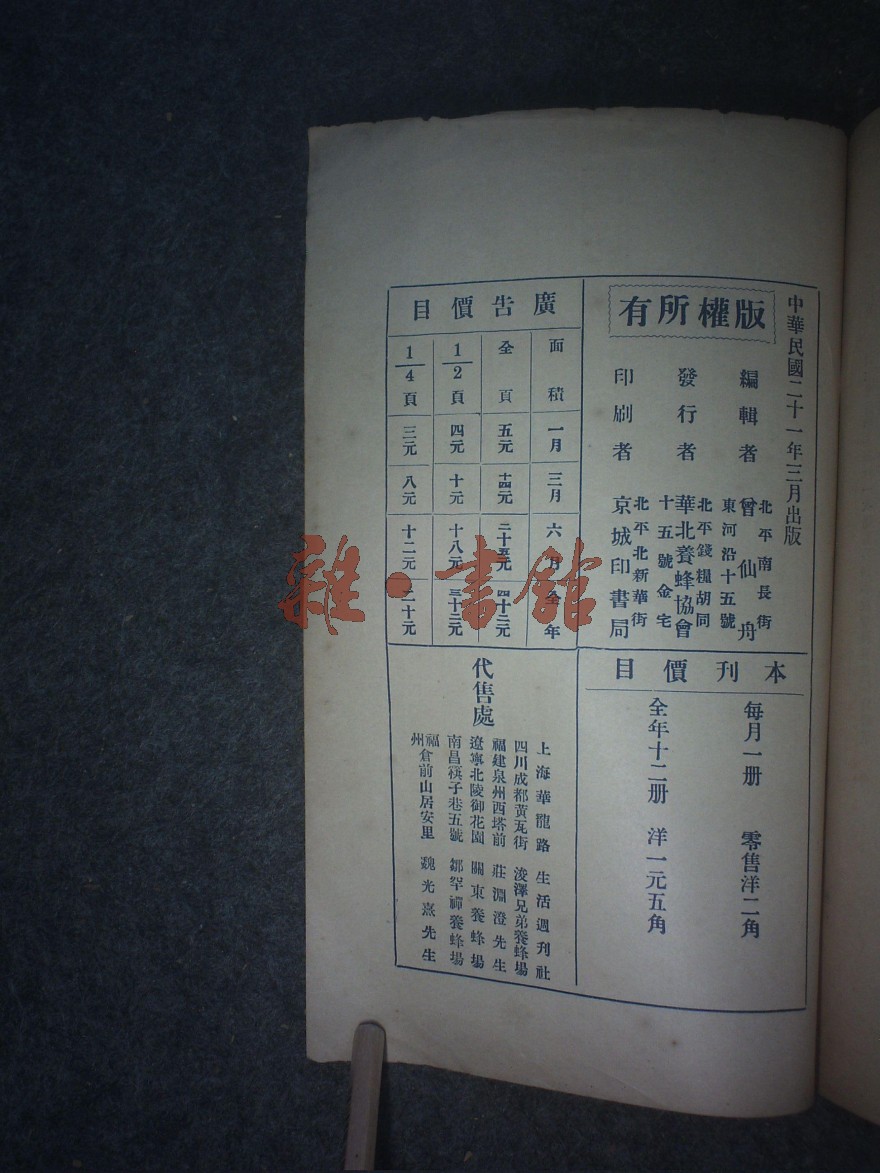 中華民國二十一年三月出版
版權所有
編輯者
北平南長街
東河沿十五號
曾仙舟
發行者
北平錢糧胡同
十五號金宅
華北養蜂協會
印刷者
北平北新華街
京城印書局
本刊價目
每月一册 零售洋二角
全年十二册 洋一元五角
廣告價目
面積 一月 三月 六月 全年
全頁 五元 十四元 二十五元 四十二元
1/2頁 四元 十元 十八元 三十二元
1/4頁 三元 八元 十二元 二十元
代售處
上海華龍路 生活週刊社
四川成都黄瓦街 淩澤兄弟養蜂場
福建泉州西塔前 莊淵澄先生
遼寧北陵御花園 關東養蜂場
南昌筷子巷五號 鄒罕禪養蜂場
福州倉前山居安里 魏光熹先生
雜·書館